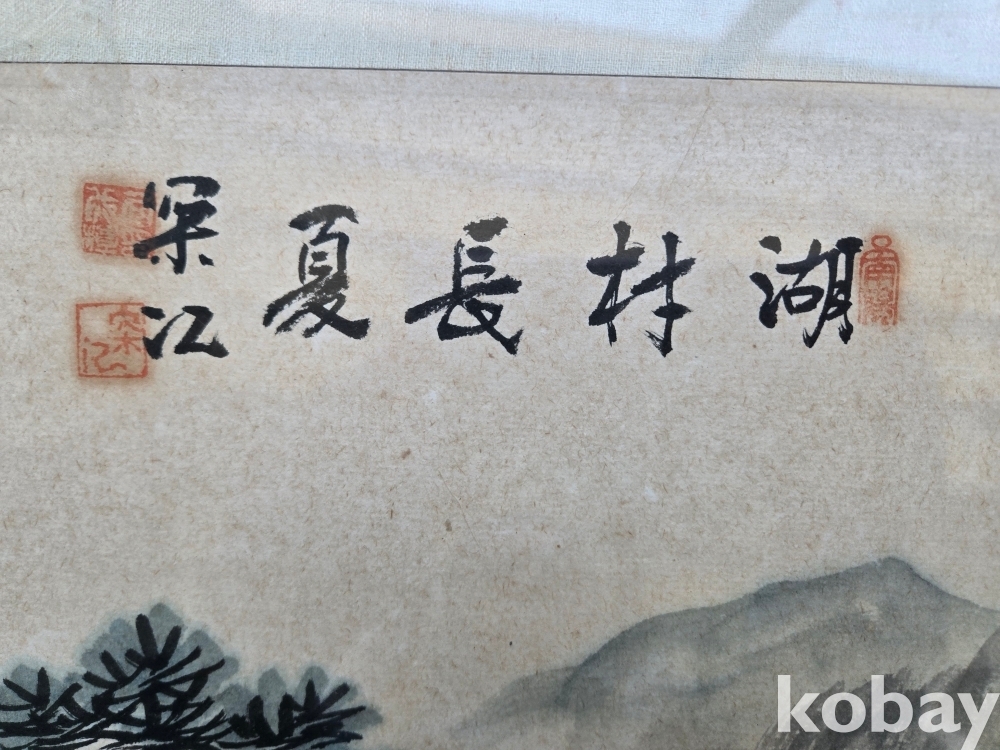 湖村長夏
深江
kobay